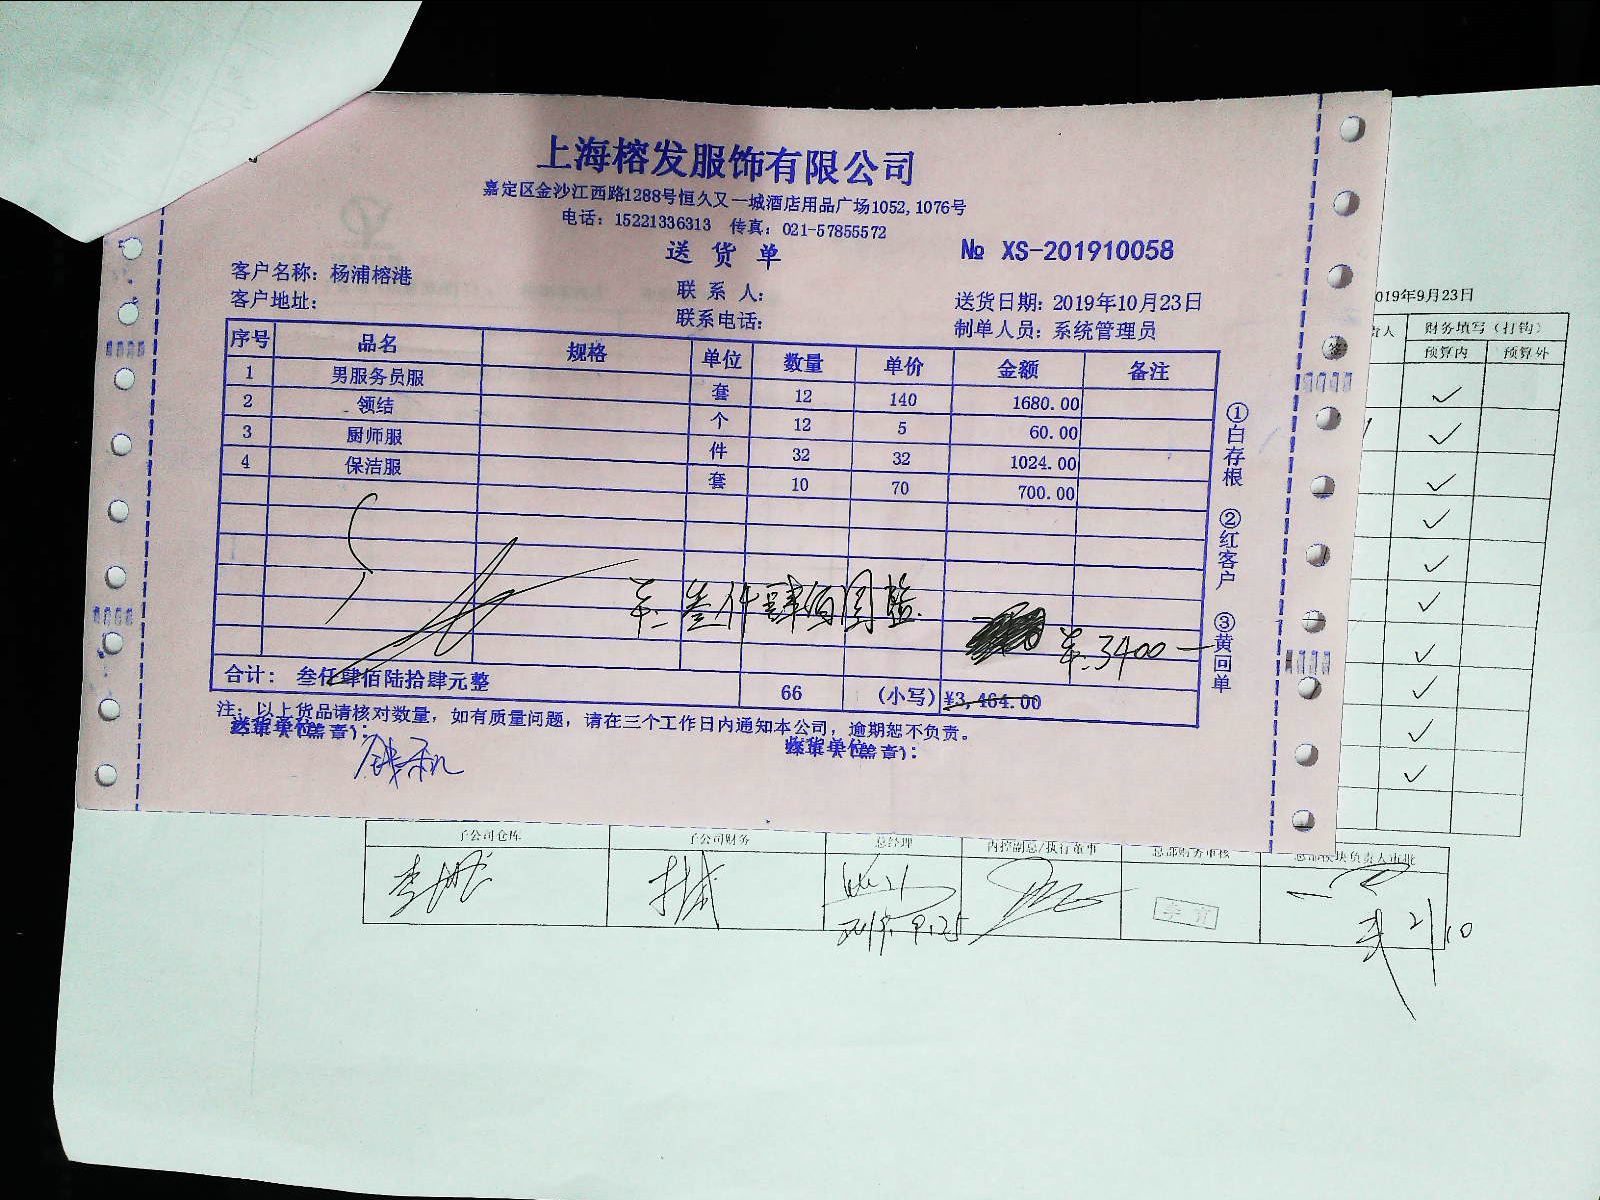 上海榕发服饰有限公司
嘉定区金沙江西路1288号恒久又一城酒店用品广场1052,1076号
电话：15221336313 传真：021-57855572
送货单 № XS-201910058
客户名称：杨浦榕港 联系人： 送货日期：2019年10月23日
客户地址： 联系电话： 制单人员：系统管理员
序号 品名 规格 单位 数量 单价 金额 备注
1 男服务员服 套 12 140 1680.00
2 领结 个 12 5 60.00
3 厨师服 件 32 32 1024.00
4 保洁服 套 10 70 700.00
叁仟肆佰圆整 3400
合计： 叁仟肆佰陆拾肆元整 66 （小写） ¥3,464.00
注：以上货品请核对数量，如有质量问题，请在三个工作日内通知本公司，逾期恕不负责。
①白存根 ②红客户 ③黄回单
019年9月23日
责人 财务填写（打钩）
预算内 预算外
子公司仓库 子公司财务 总经理 内控副总/执行董事 总部财务审核 总部板块负责人审批
2019.9.25